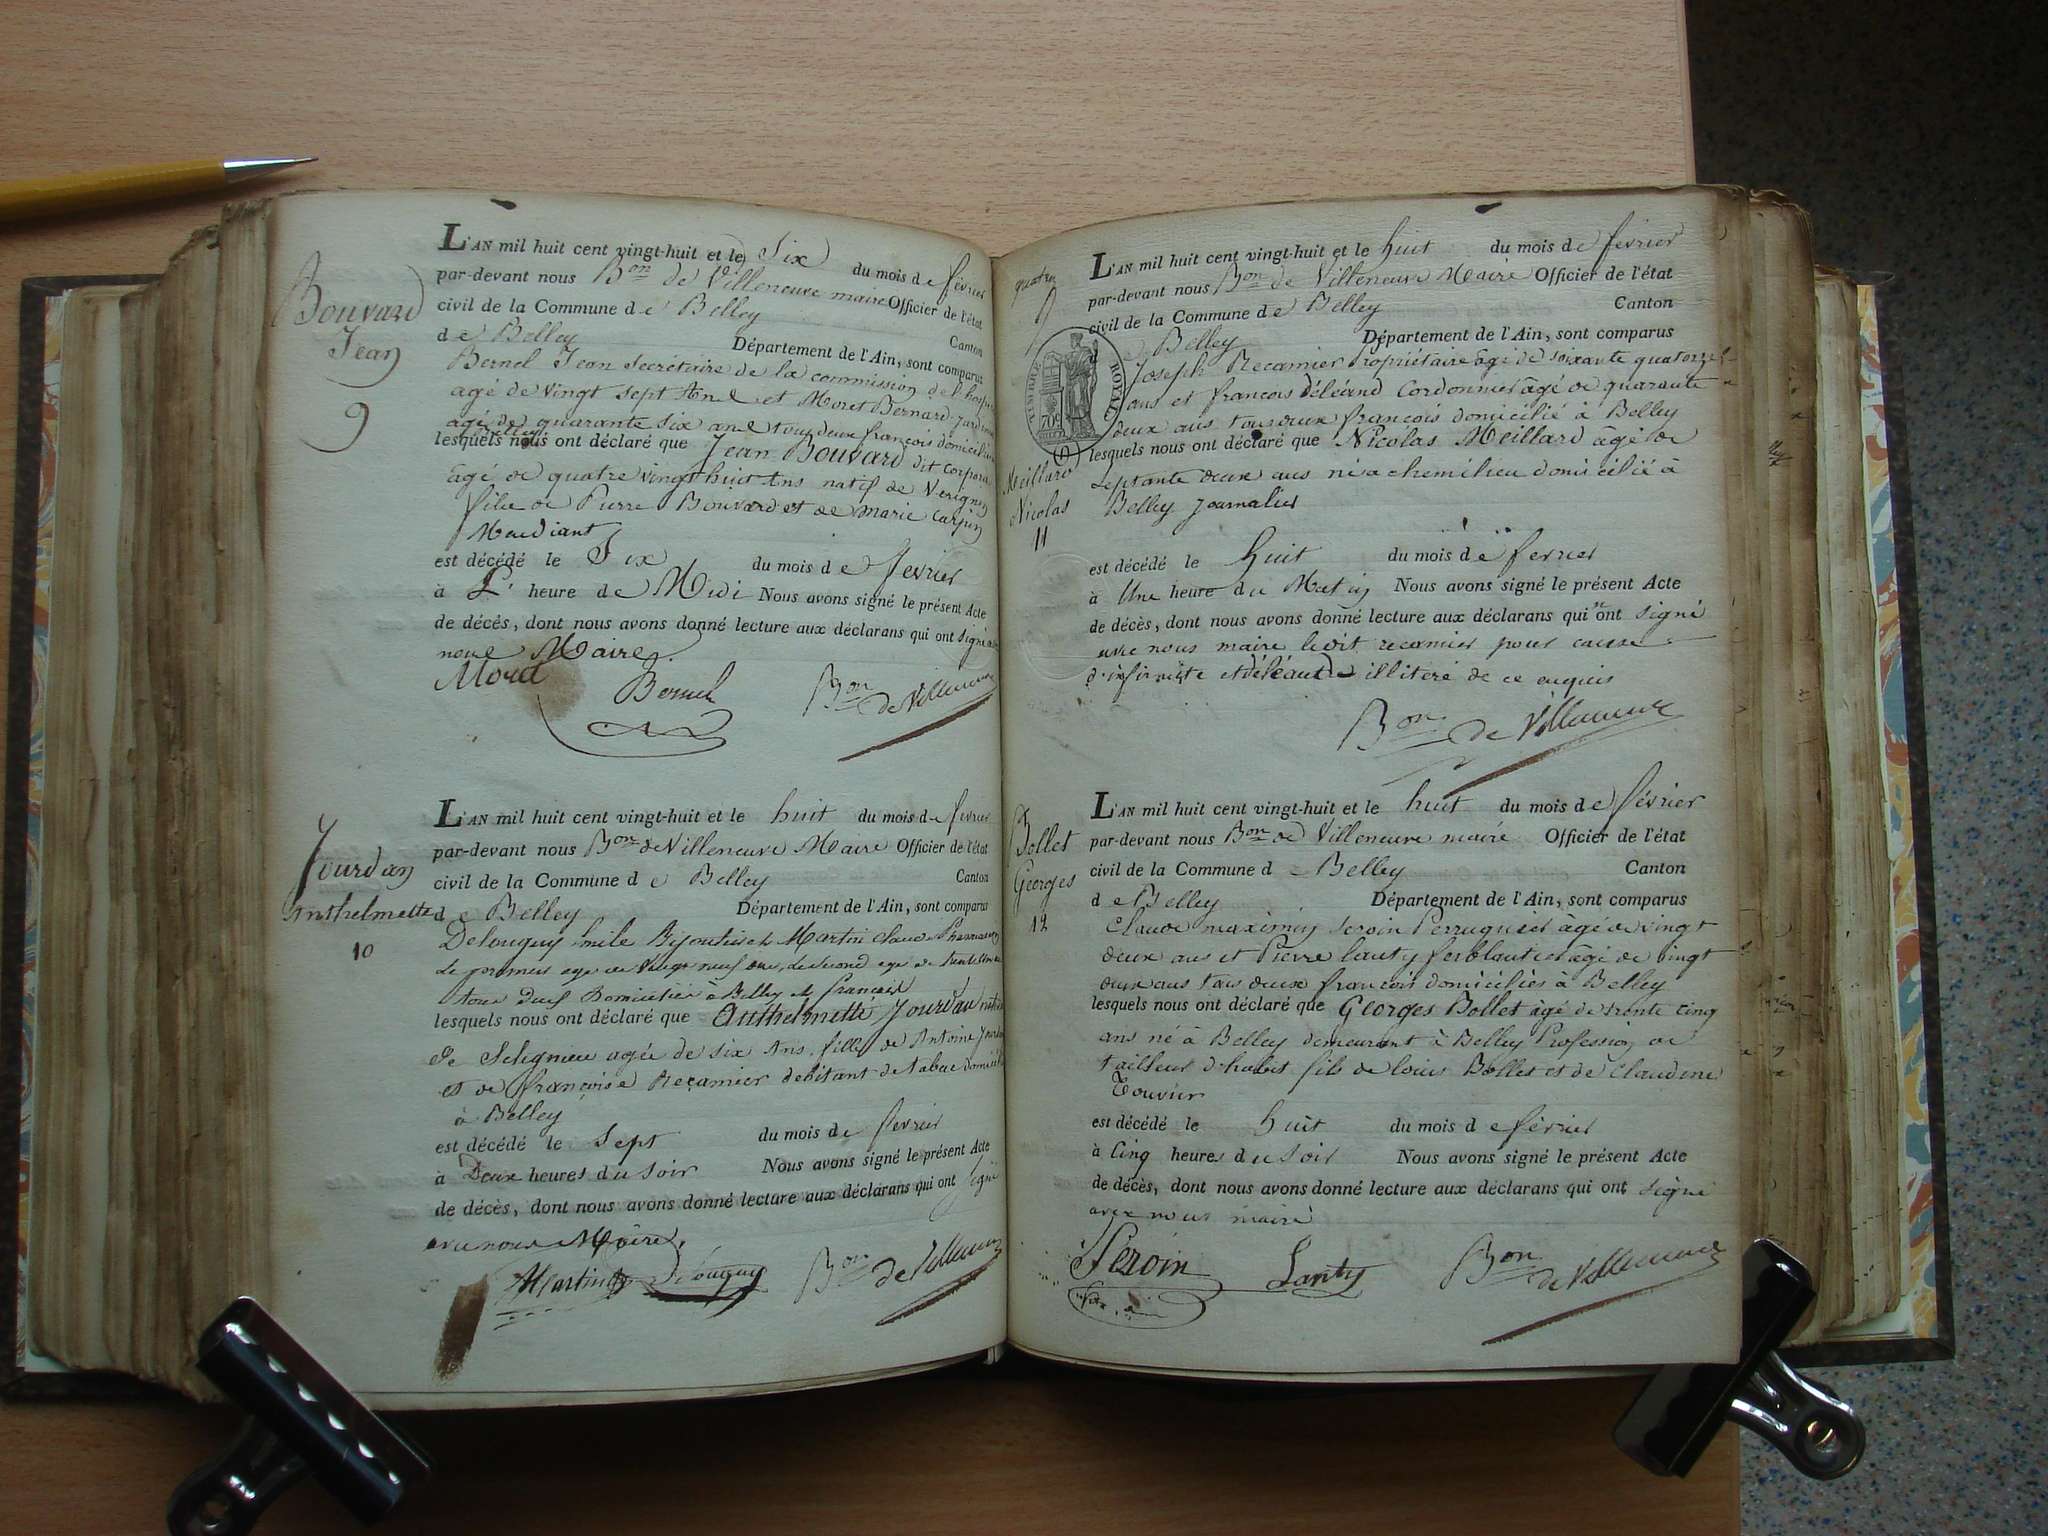 Bouvard
Jean
9
L'AN mil huit cent vingt-huit et le Six du mois de février
par-devant nous Bon de Villeneuve maire Officier de l'état
civil de la Commune de Belley Canton
de Belley Département de l'Ain, sont comparus
Bernel Jean Secrétaire de la commission de l'hospi
agé de vingt sept Ans et Moret Bernard
agé de quarante six ans tous deux françois domiciliés
à Belley
lesquels nous ont déclaré que Jean Bouvard dit Corporal
âgé de quatre vingt huit Ans natif de
fils de Pierre Bouvard et de Marie Carpin
Mendiant
est décédé le Six du mois de février
à L' heure de Midi Nous avons signé le présent Acte
de décès, dont nous avons donné lecture aux déclarans qui ont signé avec
nous Maire.
Moret Bernel Bon de Villeneuve
Jourdan
Anthelmette
10
L'AN mil huit cent vingt-huit et le huit du mois de février
par-devant nous Bon de Villeneuve Maire Officier de l'état
civil de la Commune de Belley Canton
de Belley Département de l'Ain, sont comparus
Bijoutier et Martin Claude Pharmacien
le premier agé de vingt neuf ans, le second agé de
tous deux Domiciliés à Belley et françois
lesquels nous ont déclaré que Anthelmette Jourdan native
de Seligneu agée de six Ans fille de Antoine Jourdan
et de françoise Recamier debitant de tabac domicilié
à Belley
est décédé le Sept du mois de février
à Deux heures du Soir Nous avons signé le présent Acte
de décès, dont nous avons donné lecture aux déclarans qui ont Signé
avec nous Maire.
Martin Bon de Villeneuve
quatre
TIMBRE ROYAL
70c
Meillard
Nicolas
11
L'AN mil huit cent vingt-huit et le huit du mois de février
par-devant nous Bon de Villeneuve Maire Officier de l'état
civil de la Commune de Belley Canton
de Belley Département de l'Ain, sont comparus
Joseph Recamier Propriétaire âgé de soixante quatorze
ans et françois Déléand Cordonnier âgé de quarante
deux ans tous deux françois domicilié à Belley
lesquels nous ont déclaré que Nicolas Meillard âgé de
septante deux ans né a chemilieu domicilié à
Belley Journalier
est décédé le huit du mois de fevrier
à Une heure du Matin Nous avons signé le présent Acte
de décès, dont nous avons donné lecture aux déclarans qui n'ont signé
avec nous maire ledit recamier pour cause
d'infirmité et déléand illiteré de ce enquis
Bon de Villeneuve
Bollet
Georges
12
L'AN mil huit cent vingt-huit et le huit du mois de février
par-devant nous Bon de Villeneuve maire Officier de l'état
civil de la Commune de Belley Canton
de Belley Département de l'Ain, sont comparus
Claude maximin Seroin Perruquier âgé de vingt
deux ans et Pierre Lanty ferblantier âgé de vingt
deux ans tous deux françois domiciliés à Belley
lesquels nous ont déclaré que Georges Bollet âgé de trente cinq
ans né à Belley demeurant à Belley Profession de
tailleur d'habit fils de louis Bollet et de Claudine
est décédé le huit du mois de février
à Cinq heures du Soir Nous avons signé le présent Acte
de décès, dont nous avons donné lecture aux déclarans qui ont signé
avec nous maire
Seroin Lanty Bon de Villeneuve